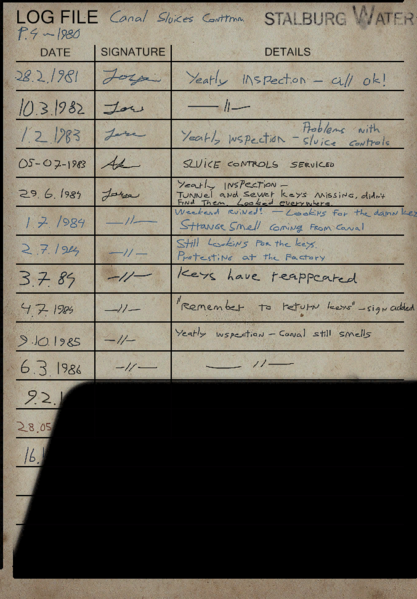 LOG FILE Canal Sluices STALBURG WATER
P.4 - 1980
DATE SIGNATURE DETAILS
28.2.1981 Yearly Inspection - all ok!
10.3.1982 —〃—
1.2.1983 Yearly Inspection - Problems with sluice controls
05-07-1983 SLUICE CONTROLS SERVICED
29.6.1984 Yearly Inspection -
Tunnel and Sewer keys missing, didn't
find them. Looked everywhere.
1.7.1984 —〃— Weekend ruined! - Looking for the damn keys
Strange smell coming from canal
2.7.1984 —〃— Still looking for the keys
Protesting at the Factory
3.7.84 —〃— Keys have reappeared
4.7.1984 —〃— "Remember to return keys" - sign added
9.10.1985 —〃— Yearly inspection - Canal still smells
6.3.1986 —〃— —〃—
9.2.
28.05
16.